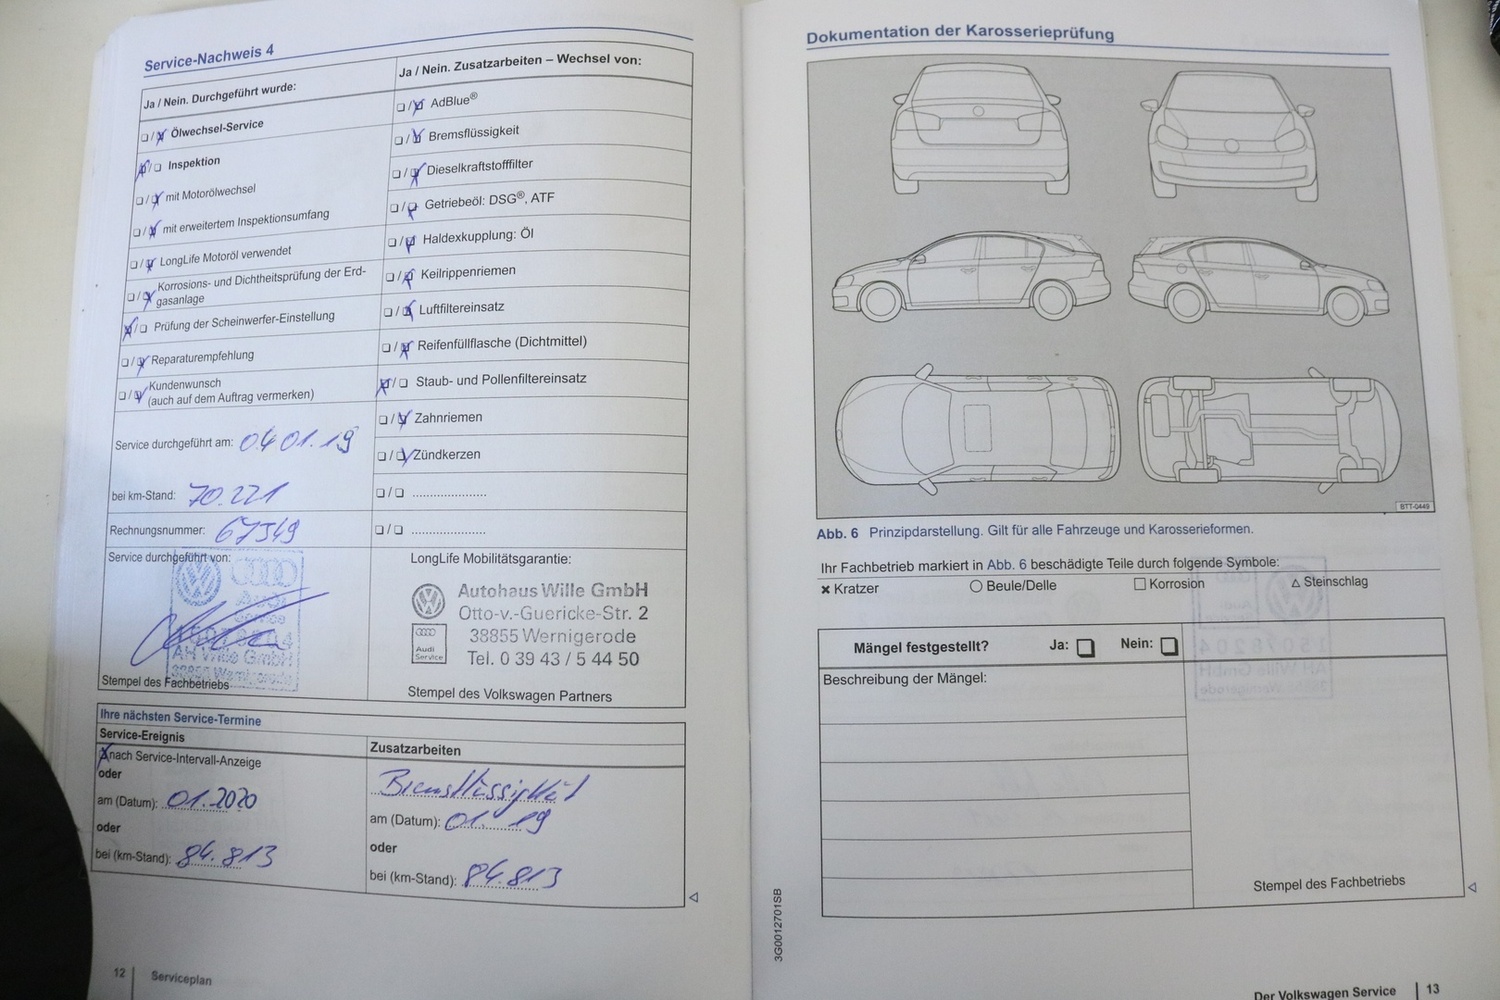 Service-Nachweis 4
Ja / Nein. Durchgeführt wurde:
Ölwechsel-Service
Inspektion
mit Motorölwechsel
mit erweitertem Inspektionsumfang
LongLife Motoröl verwendet
Korrosions- und Dichtheitsprüfung der Erd-
gasanlage
Prüfung der Scheinwerfer-Einstellung
Reparaturempfehlung
Kundenwunsch
(auch auf dem Auftrag vermerken)
Service durchgeführt am: 04.01.19
bei km-Stand: 70.221
Rechnungsnummer: 67549
Service durchgeführt von:
Audi
Service
AH Wille GmbH
38855 Wernigerode
Stempel des Fachbetriebs
Ja / Nein. Zusatzarbeiten – Wechsel von:
AdBlue®
Bremsflüssigkeit
Dieselkraftstofffilter
Getriebeöl: DSG®, ATF
Haldexkupplung: Öl
Keilrippenriemen
Luftfiltereinsatz
Reifenfüllflasche (Dichtmittel)
Staub- und Pollenfiltereinsatz
Zahnriemen
Zündkerzen
LongLife Mobilitätsgarantie:
Autohaus Wille GmbH
Otto-v.-Guericke-Str. 2
38855 Wernigerode
Tel. 0 39 43 / 5 44 50
Audi
Service
Stempel des Volkswagen Partners
Ihre nächsten Service-Termine
Service-Ereignis
nach Service-Intervall-Anzeige
oder
am (Datum): 01.2020
oder
bei (km-Stand): 84.813
Zusatzarbeiten
Bremsflüssigkeit
am (Datum): 01. 19
oder
bei (km-Stand): 84.813
12 | Serviceplan
Dokumentation der Karosserieprüfung
BTT-0449
Abb. 6 Prinzipdarstellung. Gilt für alle Fahrzeuge und Karosserieformen.
Ihr Fachbetrieb markiert in Abb. 6 beschädigte Teile durch folgende Symbole:
× Kratzer ○ Beule/Delle □ Korrosion △ Steinschlag
Mängel festgestellt? Ja: □ Nein: □
Beschreibung der Mängel:
Stempel des Fachbetriebs
3G0012701SB
Der Volkswagen Service | 13